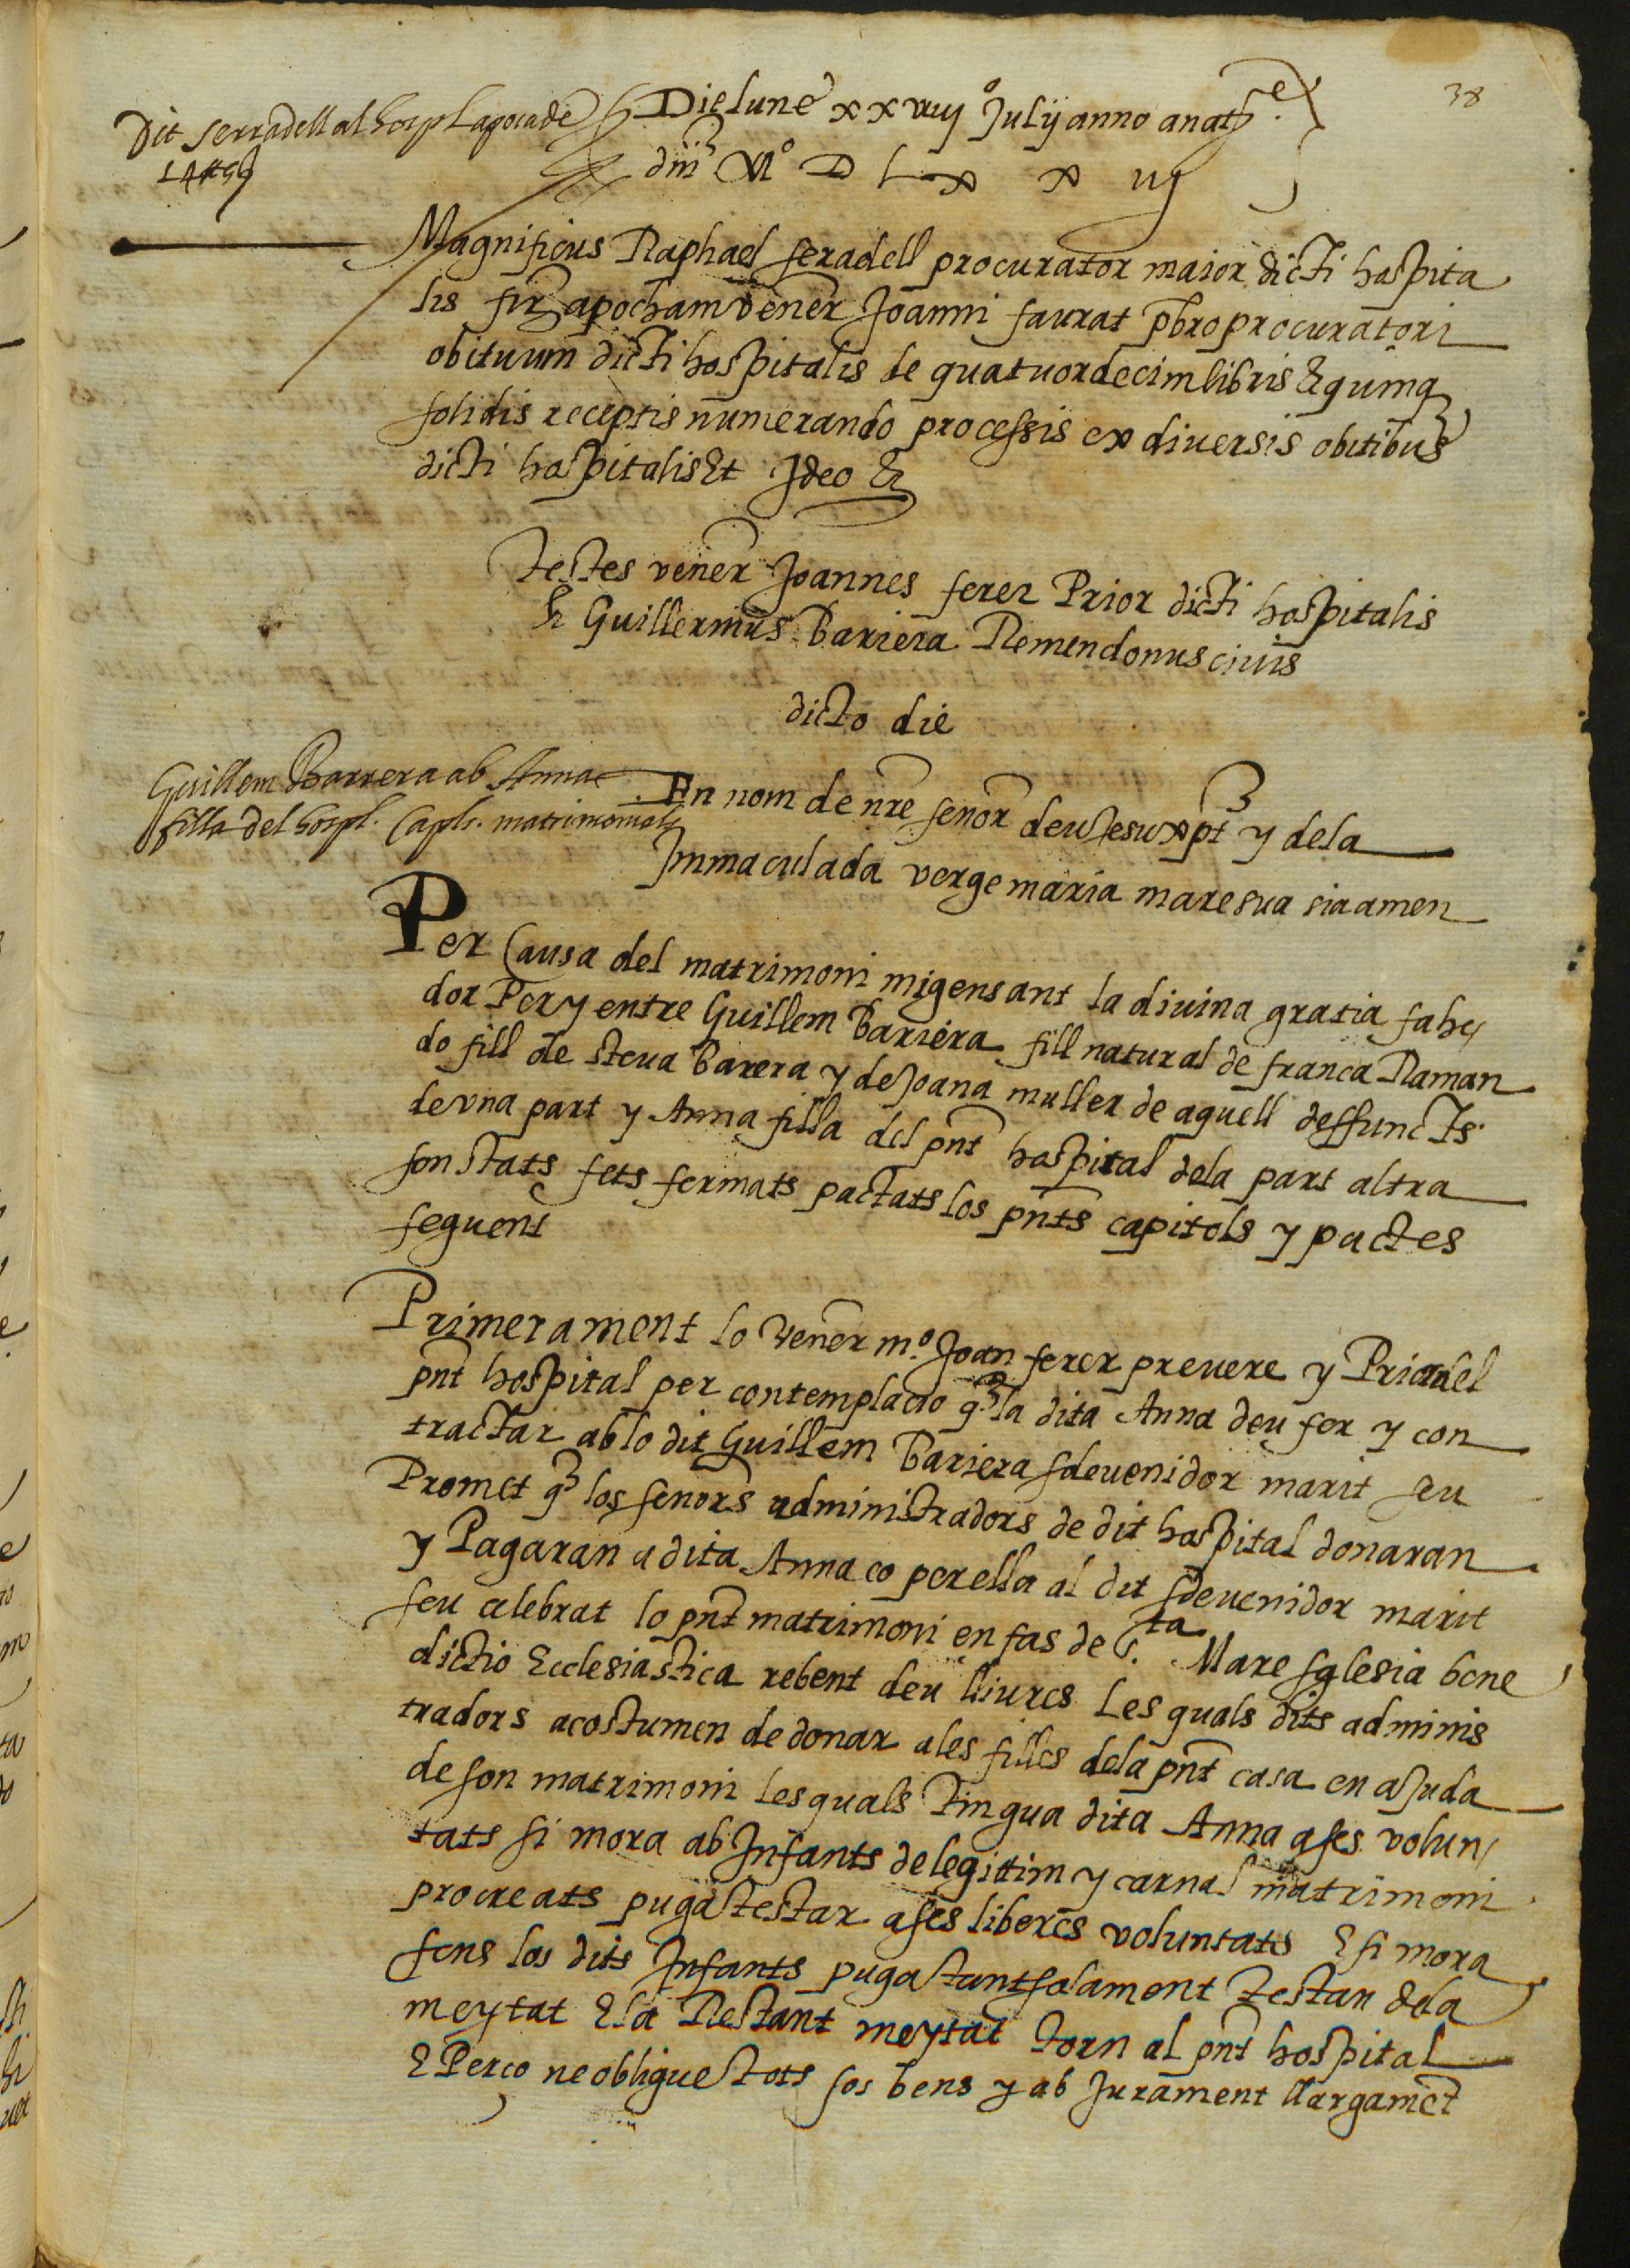 38
Dit serradell al hospl apocade
14 ll 5 s
Die lune xxviiij Julij anno a nat.e
dni Mº D L x x vij
Magnificus Raphael seradell procurator maior dicti hospita
lis fir apocham vener Joanni saurat pbro procuratori
obituum dicti hospitalis de quatuordecim libris & quinq
solidis receptis numerando processis ex diversis obitibus
dicti hospitalis Et Ideo &
testes vener Joannes ferer Prior dicti hospitalis
& Guillermus Bariera Remendonus civis
dicto die
Guillem Barrera ab Anna
filla del hospl. Capls. matrimonials
En nom de nre senor deu Jesu xpt y dela
Immaculada verge maria mare sua sia amen
Per Causa del matrimoni migensant la divina gratia fahe
dor Per y entre Guillem Bariera fill natural de franca Raman
do fill de steva Barera y de Joana muller de aquell deffuncts
de vna part y Anna filla del pnt hospital dela part altra
son stats fets fermats pactats los pnts capitols y pactes
seguent
Primerament lo Vener mº Joan ferer prevere y Prior del
pnt hospital per contemplacio q la dita Anna deu fer y con
tractar ab lo dit Guillem Bariera sdevenidor marit seu
Promet q los senors administradors de dit hospital donaran
y Pagaran a dita Anna co per ella al dit sdevenidor marit
seu celebrat lo pnt matrimoni en fas de S.ta Mare sglesia bene
dictio Ecclesiastica rebent deu lliures Les quals dits adminis
tradors acostumen de donar ales filles dela pnt casa en ajuda
de son matrimoni les quals Tingua dita Anna a ses volun
tats si mora ab Infants de legitim y carnal matrimoni
procreats puga testar a ses liberes voluntats E si mora
sens los dits Infants puga tant solament testar dela
meytat E la Restant meytat torn al pnt hospital
E Perco ne obligue tots sos bens y ab Jurament llargamet